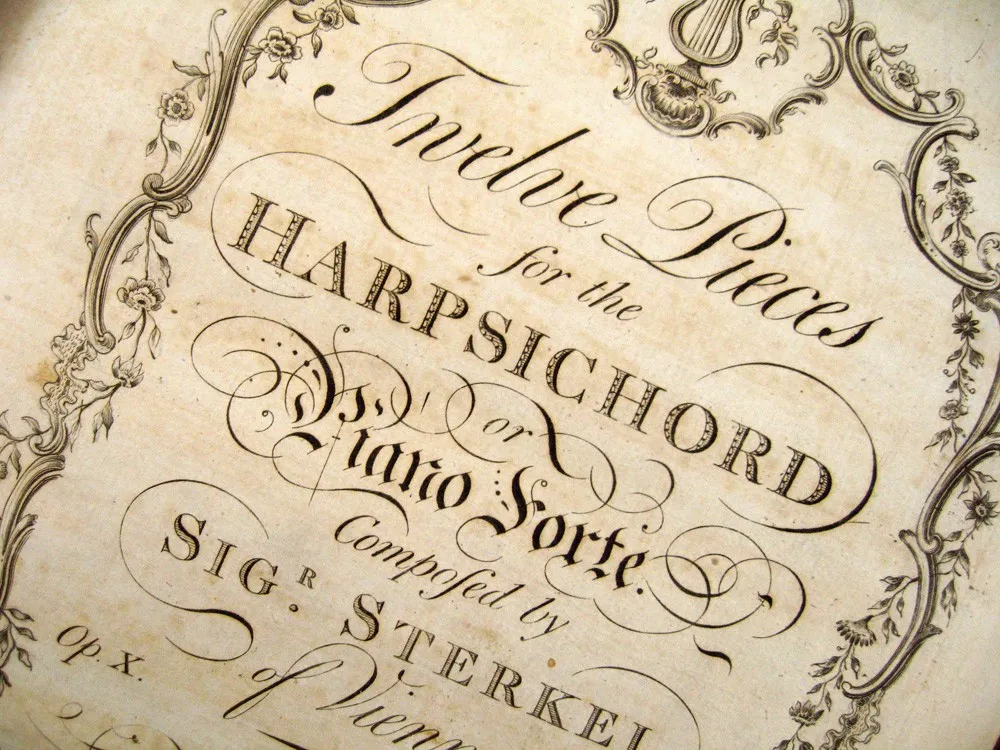 Twelve Pieces
for the
HARPSICHORD
or
Piano Forte.
Compoſed by
SIG.R STERKEL
Op. X.
of Vienn